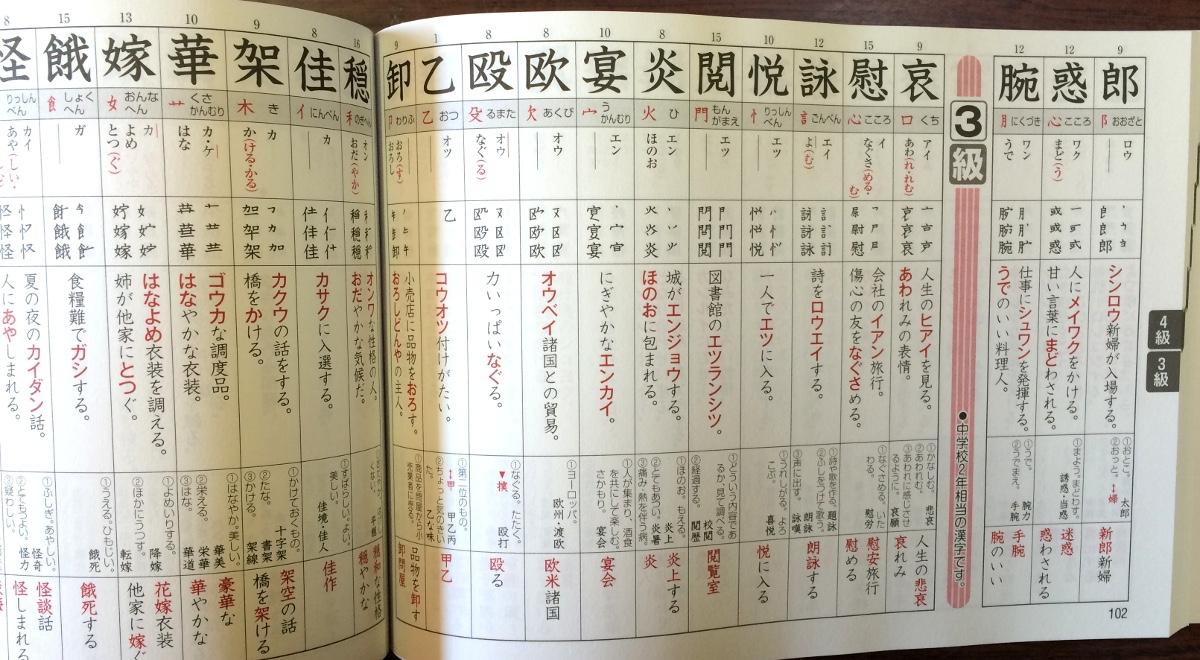 9
郎
阝 おおざと
ロウ
シンロウ新婦が入場する。
①おとこ。
②おっと。↔婦
太郎
新郎新婦
12
惑
心 こころ
ワク
まど(う)
人にメイワクをかける。
甘い言葉にまどわされる。
①まよう。まどわす。
誘惑・当惑
迷惑
惑わされる
12
腕
月 にくづき
ワン
うで
仕事にシュワンを発揮する。
うでのいい料理人。
①うで。
②うでまえ。
腕力
手腕
手腕
腕のいい
4級
3級
102
3級
●中学校2年相当の漢字です。
9
哀
口 くち
アイ
あわ(れ・れむ)
人生のヒアイを見る。
あわれみの表情。
①かなしむ。
②あわれむ。
悲哀
人生の悲哀
哀れみ
15
慰
心 こころ
イ
なぐさ(める・む)
会社のイアン旅行。
傷心の友をなぐさめる。
慰労
慰安旅行
慰める
12
詠
言 ごんべん
エイ
よ(む)
詩をロウエイする。
①詩や歌を作る。題詠
②ふしをつけて歌う。
朗詠
③声に出す。
詠嘆
朗詠する
10
悦
忄 りっしんべん
エツ
一人でエツに入る。
①うれしがる。よろこぶ。
喜悦
悦に入る
15
閲
門 もんがまえ
エツ
図書館のエツランシツ。
①どういう内容であるか、見て調べる。
校閲
②経過する。
閲歴
閲覧室
8
炎
火 ひ
エン
ほのお
城がエンジョウする。
ほのおに包まれる。
①ほのお。もえる。
炎上
②とてもあつい。炎暑
③痛み・熱を伴う病。
炎上する
炎
10
宴
宀 うかんむり
エン
にぎやかなエンカイ。
①人が集まり、酒食を共にして楽しむ。さかもり。
宴会
宴会
8
欧
欠 あくび
オウ
オウベイ諸国との貿易。
①ヨーロッパ。
欧州・渡欧
欧米諸国
8
殴
殳 るまた
オウ
なぐ(る)
力いっぱいなぐる。
①なぐる。たたく。
▼撲
殴打
殴る
1
乙
乙 おつ
オツ
コウオツ付けがたい。
①第二位のもの。
↔甲
甲乙丙
②ちょっと気のきいた。
乙な味
甲乙
9
卸
卩 わりふ
おろ(す)
おろし
小売店に品物をおろす。
おろしどんやの主人。
品物を卸す
卸問屋
16
穏
禾 のぎへん
オン
おだ(やか)
オンワな性格の人。
おだやかな気候だ。
穏和な性格
穏やかな
8
佳
亻 にんべん
カ
カサクに入選する。
①すばらしい。よい。美しい。
佳境・佳人
佳作
9
架
木 き
カ
か(ける・かる)
カクウの話をする。
橋をかける。
①かけておくもの。
十字架
②たな。
書架
③かける。
架線
架空の話
橋を架ける
10
華
艹 くさかんむり
カ・ケ
はな
ゴウカな調度品。
はなやかな衣装。
①はなやか。美しい。
華美
②栄える。
栄華
③はな。
華道
豪華な
華やかな
13
嫁
女 おんなへん
カ
よめ
とつ(ぐ)
はなよめ衣装を調える。
姉が他家にとつぐ。
①よめいりする。
降嫁
②ほかにうつす。
転嫁
花嫁衣装
他家に嫁ぐ
15
餓
飠 しょくへん
ガ
食糧難でガシする。
①うえる。ひもじい。
餓死
餓死する
8
怪
りっしんべん
カイ
あや(しい・
夏の夜のカイダン話。
人にあやしまれる。
①ふしぎ。あやしい。
怪奇
②とてもよい。
怪力
怪談話
怪しまれる